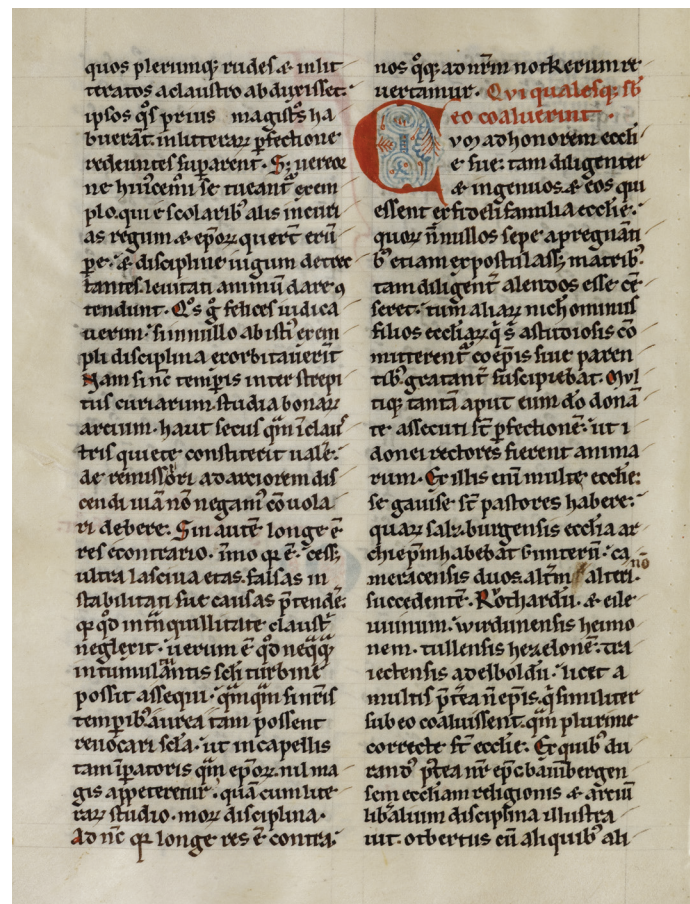 quos plerumq; rudes & inlit
teratos a claustro abduxisset:
ipsos q̊s prius magistros ha
buerant. in litterarꝫ p̄fectione
redeuntes sup̄arent. S; uereor
ne hui'cemi se tueant̄ exem
plo. qui e scolarib' alis incuri
as regum & ep̄orꝫ querēt erū
pe: & discipline iugum detrec
tantes. leuitati animū dare ꝯ
tendunt. Q̊s g̊ felices iudica
uerim. si in nullo ab isti' exem
pli disciplina exorbitauerit
Nam si nc̄ temp̄is inter strepi
tus curiarum. studia bonarꝫ
artium. haut secus qm̄ ī clau
tris quiete constiterit ualē:
de remissiori ad artiorem dis
cendi uiā nō negam' cōuola
ri debere: Sin autē longe ē
res econtrario. īmo q̨ ē. cess;
ultra lasciua etas. falsas in
stabilitati sue causas p̄tendē:
q̨ q̊d in tn̄quillitate claustr̄
neglexit. uerum ē q̊d neq̄q̄
in tumulantis sc̄li turbine
possit assequi. qm̄qm̄ si nr̄is
temporib' aurea tam possent
reuocari sc̄la. ut in capellis
tam īp̄atoris qm̄ ep̄orꝫ. nil ma
gis appeteretur. quā cum lite
rarꝫ studio. morꝫ disciplina.
Ad nc̄ q̨ longe res ē contra:
nos q̊q; ad nr̄m notkerum re
uertamur. Qui qualesq; sb̄
eo coaluerint.
Cum ad honorem eccli
e sue: tam diligenter
& ingenuos. & eos qui
essent ex fideli familia ecclie:
quorꝫ n̄ nullos sepe a pregnanti
b' etiam expostulass; matrib'.
tam diligent̄ alendos esse cē
seret. tum aliarꝫ nichominus
filios eccliarꝫ q̄ s̄ a studiosis cō
mitterent̄ coep̄is siue paren
tib'. gratant̄ suscipiebat. Mul
tiq; tantā aput eum do donā
te assecuti st̄ p̄fectionē. ut i
donei rectores fierent anima
rum. Ex illis enī multe ecclie:
se gauise st̄ pastores habere:
quarꝫ salzburgensis ecclia ar
chiep̄m habebat Guntern̄. ca
meracensis duos. altm̄ alteri. nō
succedentē. Rothardū. & eile
uuinum. wirdunensis heimo
nem. tullensis hezelonē. tra
iectensis adelboldū. licet a
multis p̄tea n̄ ep̄is. q̄ similiter
sub eo coaluissent. qm̄ plurime
correcte st̄ ecclie. Ex quib' du
rand' p̄tea nr̄ ep̄c bambergen
sem eccliam religionis & artiū
lib̄alium disciplina illustra
uit. otbertus eū aliquib' ali